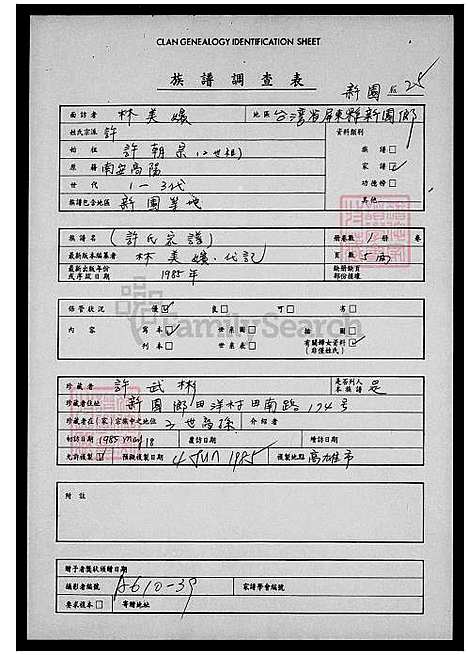 CLAN GENEALOGY IDENTIFICATION SHEET
族譜調查表
新園
面訪者 林美嬪 地區 台灣省屏東縣新園鄉
姓氏宗派 許 資料類別
始祖 許朝 (二世祖) 族譜□
原籍 南安高陽 家譜☑
世代 1-3代 功德榜□
族譜包含地區 新園等地 其他
族譜名 (許氏家譜) 冊卷數 1 冊 卷
最新版本編纂者 林美嬪·代記 頁數 5面
最新出版年份或序跋日期 1985年 缺冊缺頁部份種機
保管狀況 優☑ 良□ 可□ 劣□
內容 寫本☑ 世系圖□ 插圖□
刊本□ 世系表□ 有關婦女資料(非僅姓氏)☑
FamilySearch
珍藏者 許武彬 是否列入本族譜 是
珍藏者住址 新園鄉田洋村田南路174号
珍藏者在(家)宗族中之地位 世裔孫 介紹者
初訪日期 1985 May 18 覆訪日期 增訪日期
允許複製☑ 預擬複製日期 4 JUN 1985 複製地點 高雄市
附註
贈予者獎狀頒贈日期
攝影者編號 A610-39 家譜學會編號
要求複本□ 寄贈地址